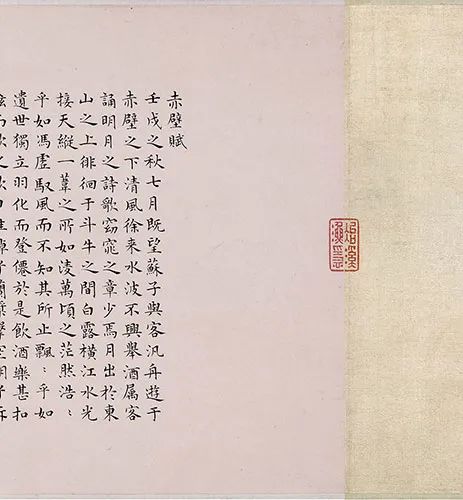 赤壁賦
壬戌之秋七月既望蘇子與客汎舟遊于
赤壁之下清風徐来水波不興舉酒属客
誦明月之詩歌窈窕之章少焉月出於東
山之上徘徊于斗牛之間白露橫江水光
接天縱一葦之所如淩萬頃之茫然浩〻
乎如馮虛馭風而不知其所止飄〻乎如
遺世獨立羽化而登僊於是飲酒樂甚扣